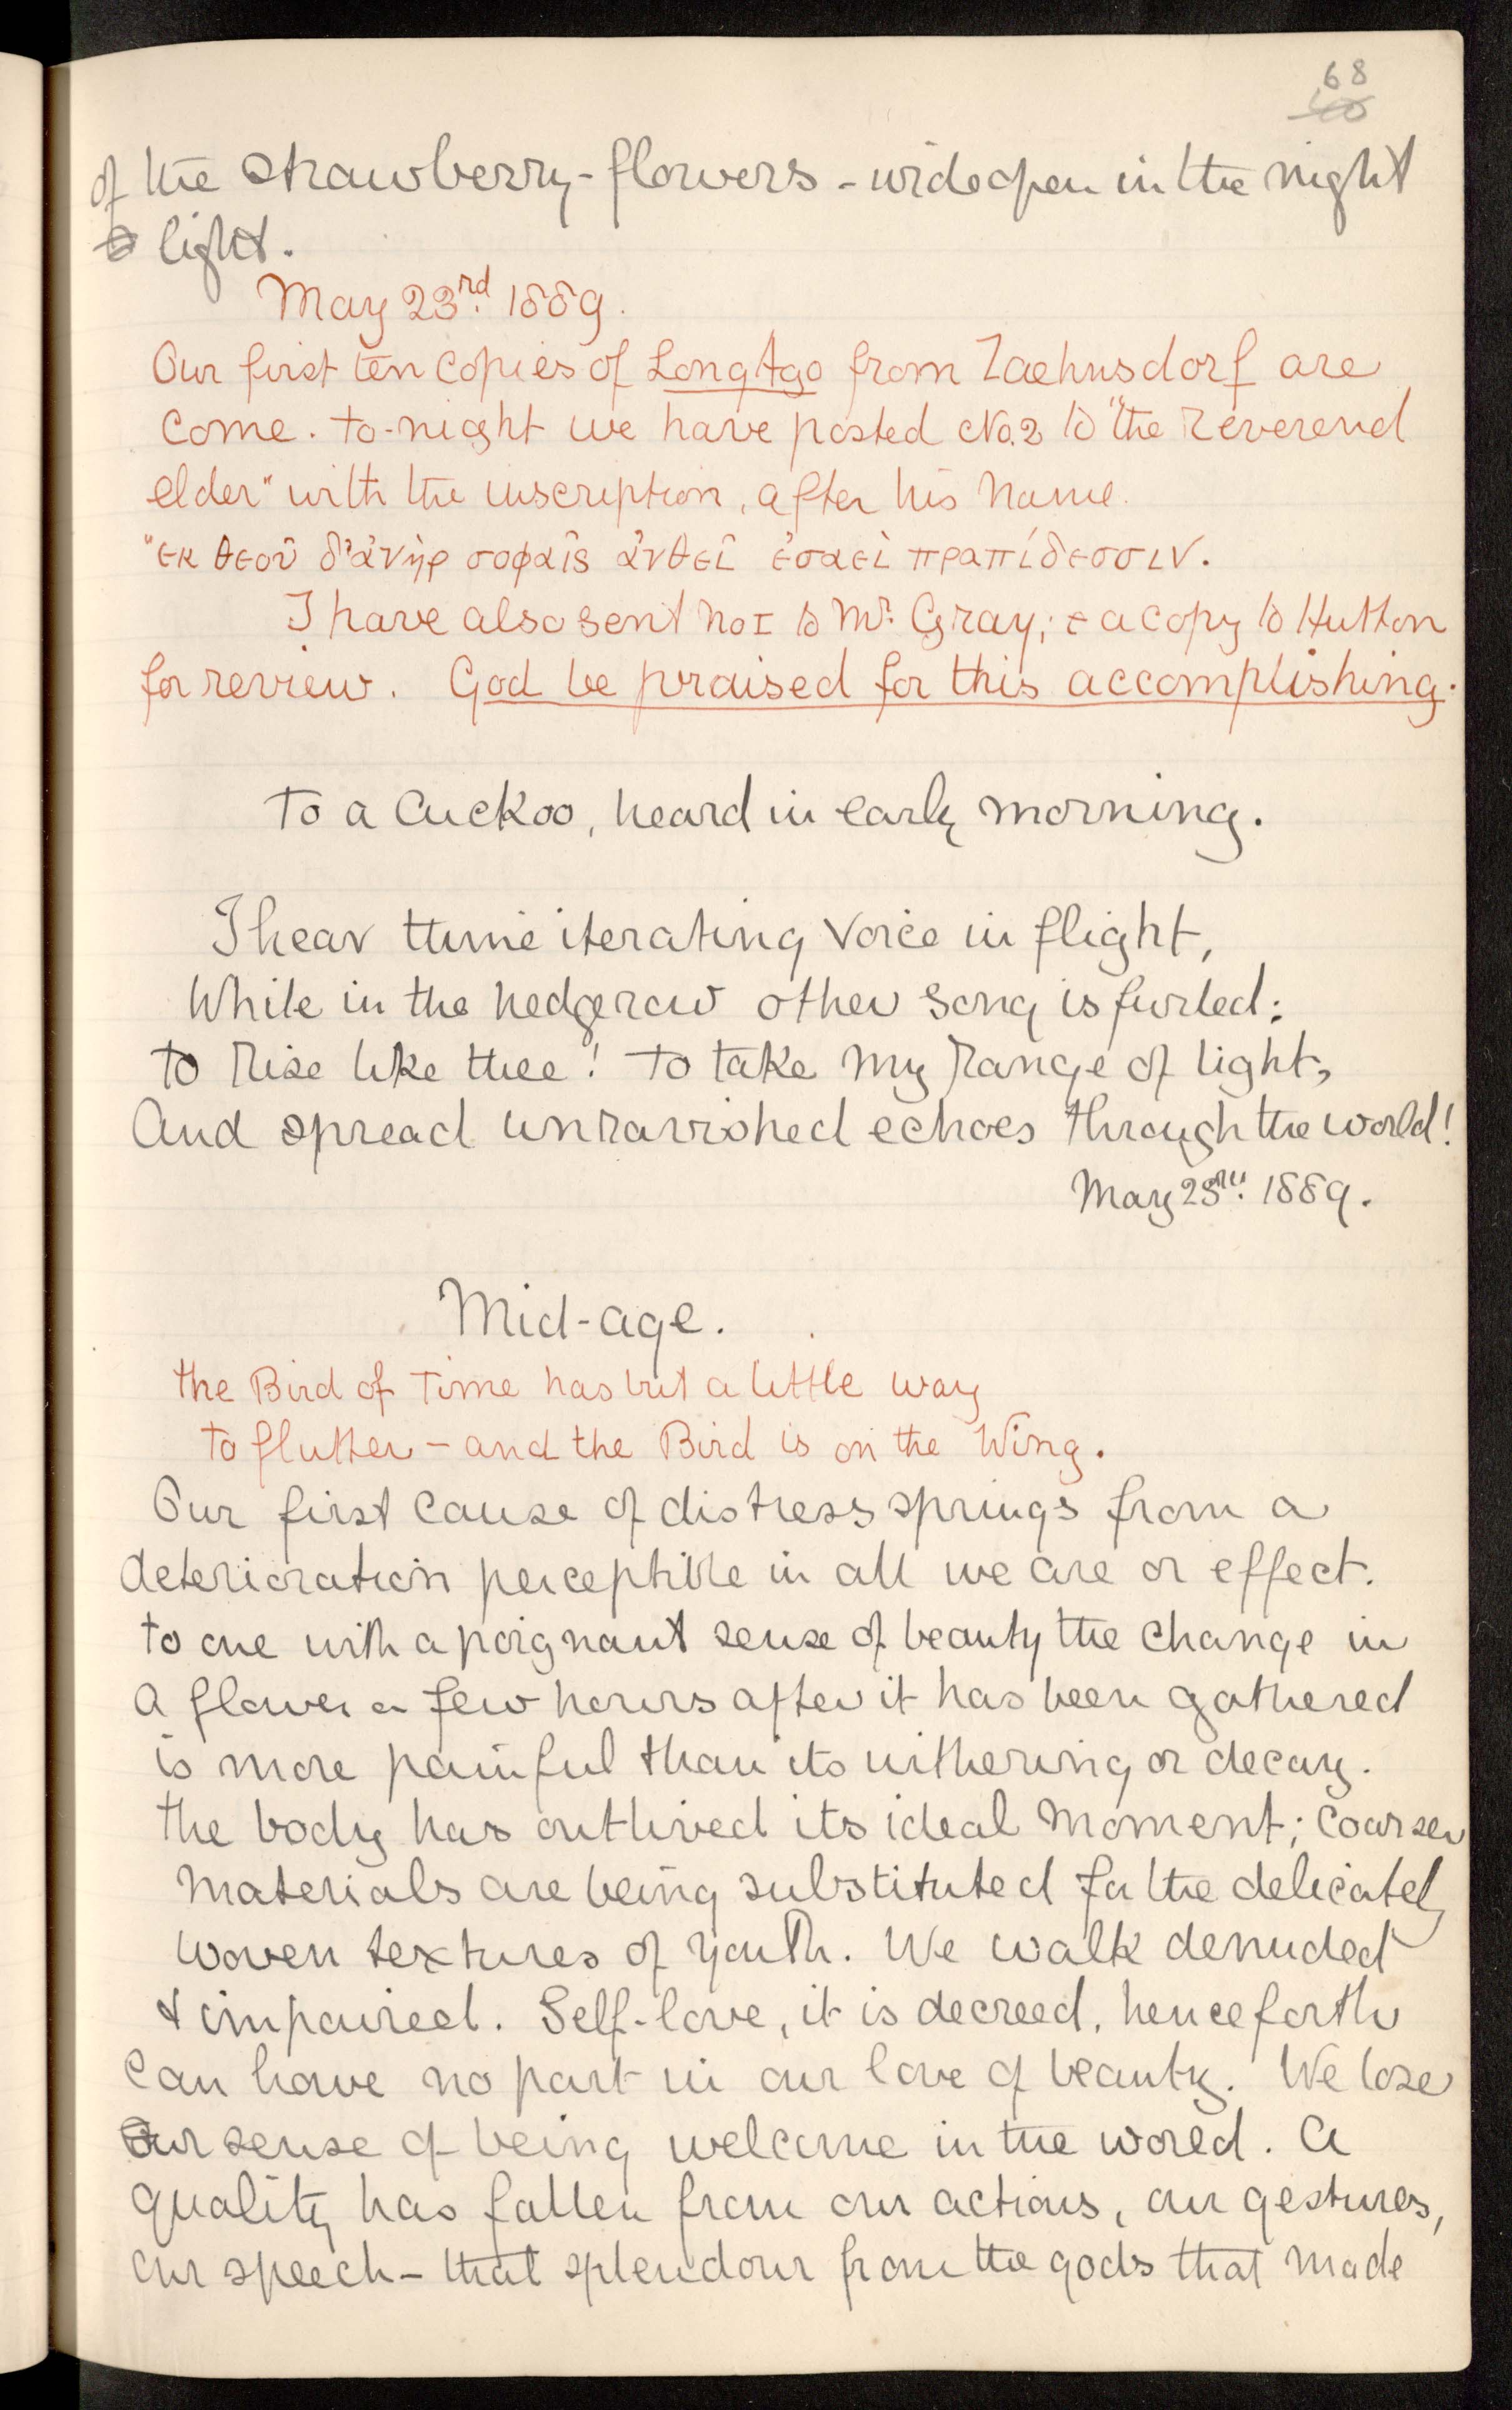 68
of the strawberry-flowers - wide open in the night
light.
May 23rd. 1889.
Our first ten copies of Long Ago from Zaehnsdorf are
come. To-night we have posted No. 2 to "the reverend
elder" with the inscription, after his name.
"εκ θεοῦ δ'ἀνὴρ σοφαῖς ἀνθεῖ ἐσαεὶ πραπίδεσσιν.
I have also sent No I to Mr. Gray; & a copy to Hutton
for review. God be praised for this accomplishing.
To a Cuckoo, heard in early morning.
I hear thine iterating voice in flight,
While in the hedgerow other song is furled:
To rise like thee! To take my range of light,
And spread unravished echoes through the world!
May 23rd. 1889.
Mid-age.
The Bird of Time has but a little way
To flutter - and the Bird is on the Wing.
Our first cause of distress springs from a
deterioration perceptible in all we are or effect.
To one with a poignant sense of beauty the change in
a flower a few hours after it has been gathered
is more painful than its withering or decay.
The body has outlived its ideal moment; coarser
materials are being substituted for the delicately
woven textures of youth. We walk denuded
& impaired. Self-love, it is decreed, henceforth
can have no part in our love of beauty. We lose
our sense of being welcome in the world. A
quality has fallen from our actions, our gestures,
our speech - that splendour from the gods that made